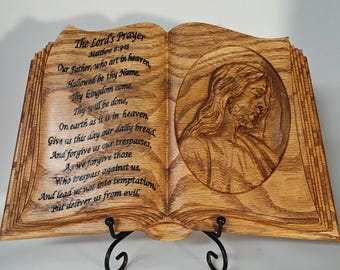 The Lord's Prayer
Matthew 6:9-13
Our Father, who art in heaven,
Hallowed be thy Name.
Thy kingdom come.
Thy will be done,
On earth as it is in heaven.
Give us this day our daily bread.
And forgive us our trespasses,
As we forgive those
Who trespass against us.
And lead us not into temptation,
But deliver us from evil.